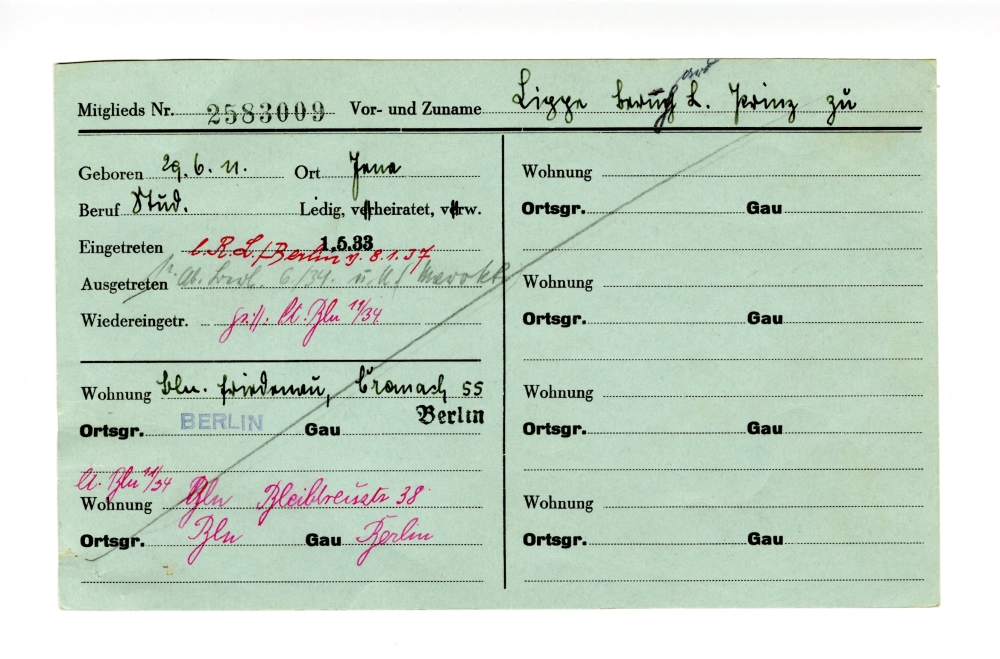 Mitglieds Nr. 2583009 Vor- und Zuname Lippe L. Prinz zu
Geboren 29.6.11. Ort Jena
Beruf Stud. Ledig, verheiratet, verw.
Eingetreten 1.5.33
l. R.L./Berlin v. 8.1.37
Ausgetreten 6/34. u. Marokko
Wiedereingetr. lt. Bln 11/34
Wohnung Bln. Friedenau, 55
Ortsgr. BERLIN Gau Berlin
lt. Bln 11/34
Wohnung Bln Bleibtreustr 38
Ortsgr. Bln Gau Berlin
Wohnung
Ortsgr. Gau
Wohnung
Ortsgr. Gau
Wohnung
Ortsgr. Gau
Wohnung
Ortsgr. Gau